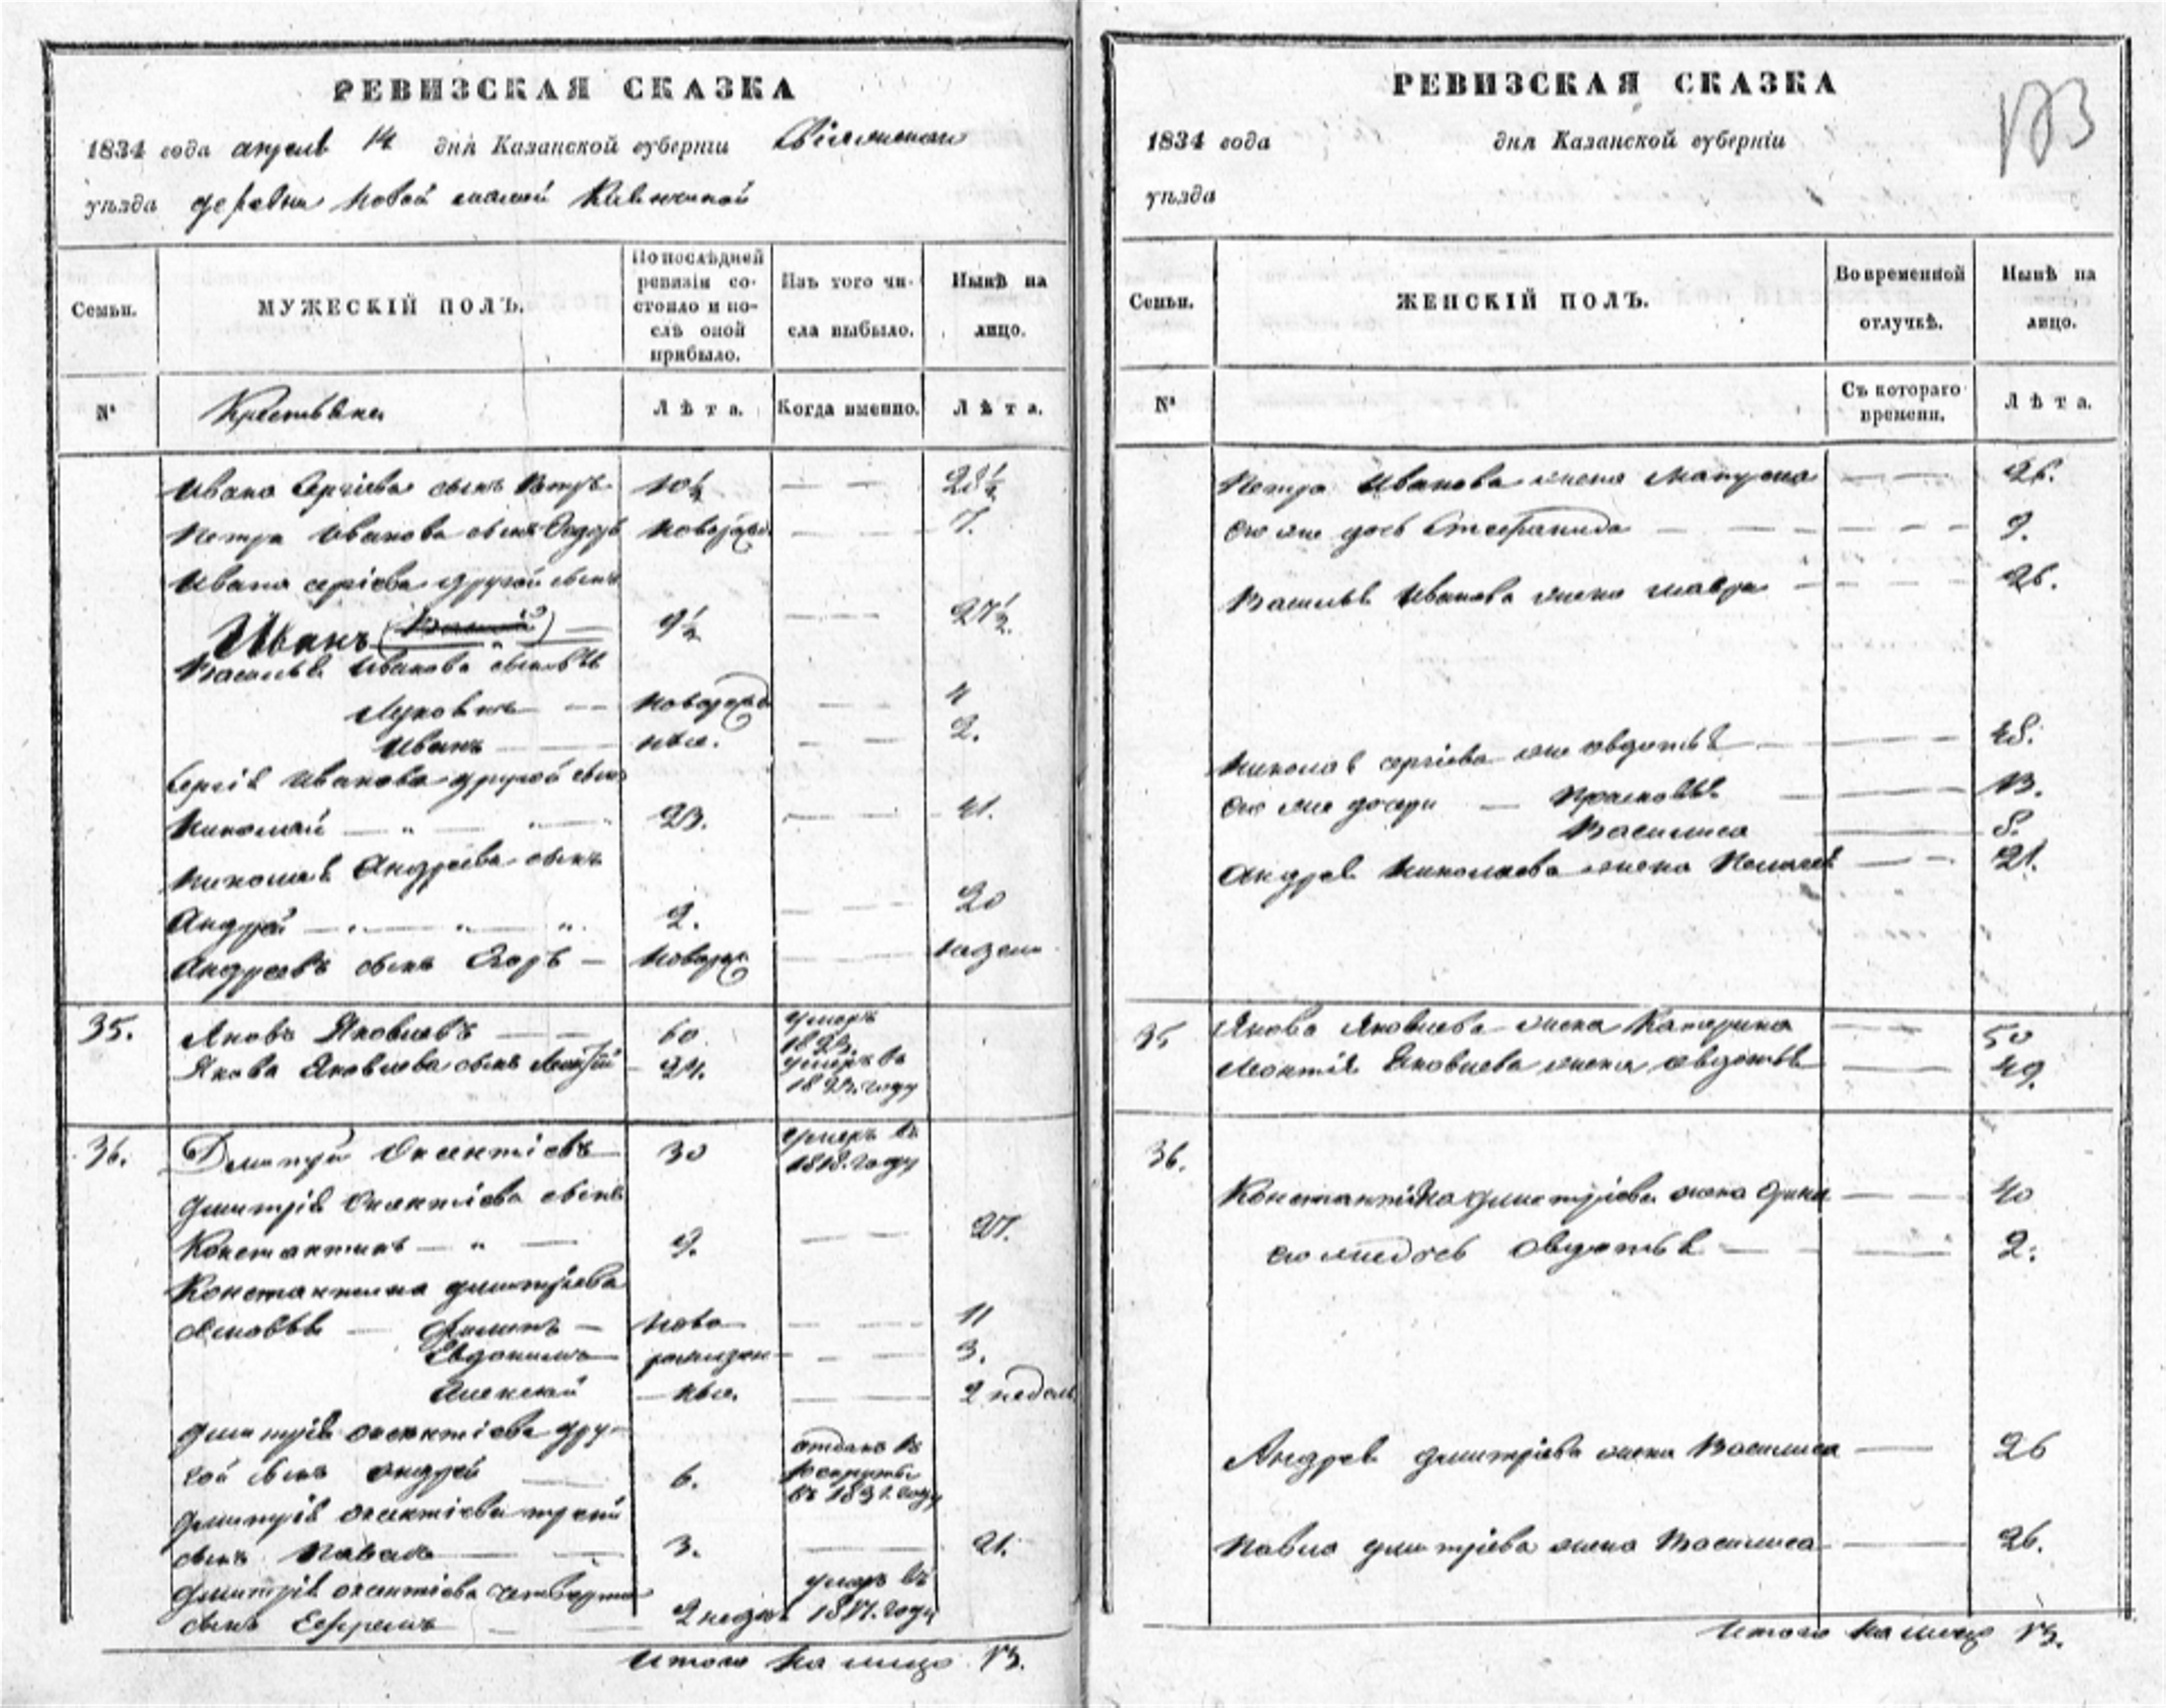 РЕВИЗСКАЯ СКАЗКА
1834 года апреля 14 дня Казанской губерніи
уѣзда деревни Новой малой
Семьи.
МУЖЕСКІЙ ПОЛЪ.
По послѣдней ревизіи состояло и послѣ оной прибыло.
Изъ того числа выбыло.
Нынѣ на лицо.
№
Крестьяне
Лѣта.
Когда именно.
Лѣта.
Ивана Сергіева сынъ Петръ 10½ — — 28½
Петра Иванова сынъ Ѳедоръ новорожд. — — 7.
Ивана Сергіева другой сынъ
Иванъ (Василій) — 9½ — — 27½
Василья Иванова сыновья
— — 4
Иванъ — ные. — — 2.
Сергія Иванова другой сынъ
Николай — " — " — 23. — — 41.
Николая Андреева сынъ
Андрей — " — " " 2. — — 20
Андреевъ сынъ Егоръ — новорож. — —
35. Яковъ Яковлевъ — — 60 умеръ 1823.
Якова Яковлева сынъ Леонтій 24. умеръ въ году
36. Дмитрій Оксентіевъ 30 умеръ въ 1818. году
Дмитрія Оксентіева сынъ
Константинъ — " — 9. — — 27.
Константина Дмитріева
сыновья — Филипъ — ново — — 11
Евдокимъ рожден — — 3.
Алексей — ные. — — 2 недель
Дмитрія Оксентіева дру-
гой сынъ Андрей — 6. отданъ въ рекруты въ 1831. году
Дмитрія Оксентіева третій
сынъ Павелъ — — 3. — 21.
Дмитрія Оксентіева четвертой
сынъ Ефремъ — — 2 недель умеръ въ 1817. году
Итого на лицо 13.
РЕВИЗСКАЯ СКАЗКА
1834 года дня Казанской губерніи
уѣзда
Семьи.
ЖЕНСКІЙ ПОЛЪ.
Во временной отлучкѣ.
Нынѣ на лицо.
№
Съ котораго времени.
Лѣта.
Петра Иванова жена Матрена — — 26.
его же дочь Степанида — — — 9.
Василья Иванова жена Мавра — — 26.
Николая Сергіева жена Авдотья — — 48.
его же дочери — Прасковья — — 13.
Василиса — 8.
Андрея Николаева жена Пелагея — — 21.
35 Якова Яковлева жена Катерина — — 50
Леонтія Яковлева жена Авдотья — — 49.
36. Константина Дмитріева жена Орина — — 40
его же дочь Овдотья — — 2.
Андрея Дмитріева жена Василиса — 26
Павла Дмитріева жена Василиса — 26.
Итого на лицо 13.